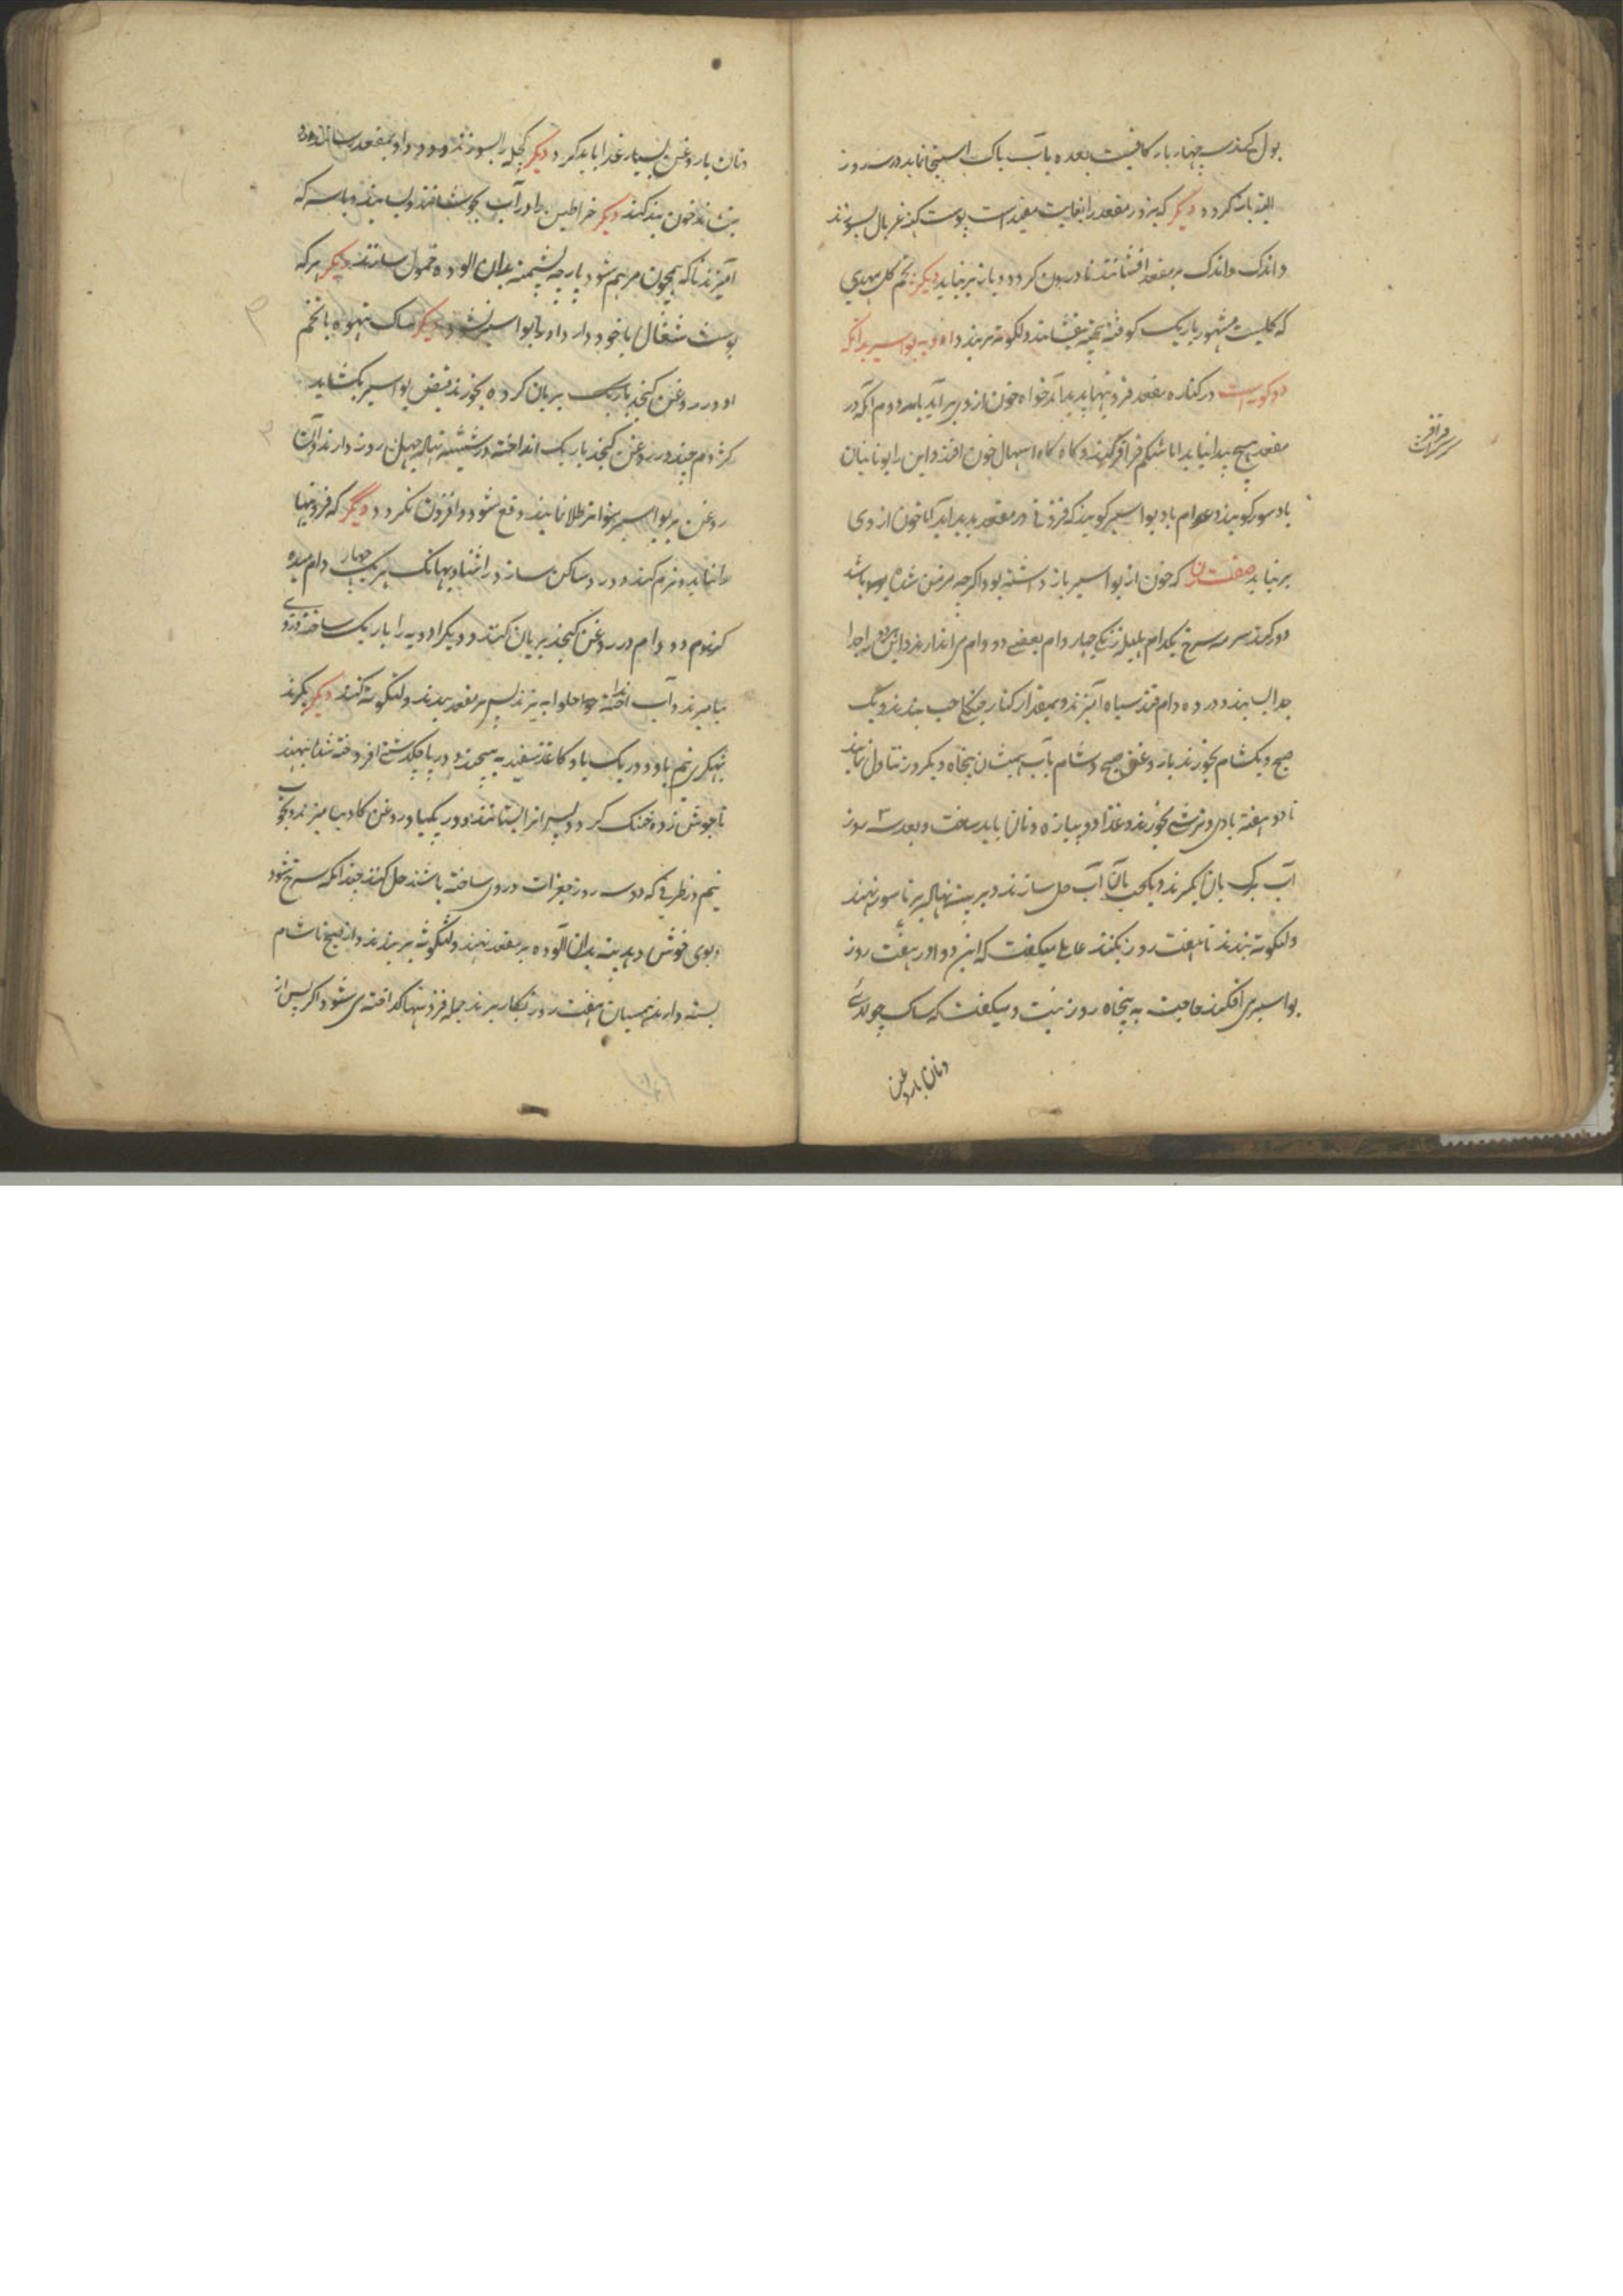 بول کند سه چهار بار کافیست بعده بآب پاک استنجا نماید در سه روز
البته باز گردد دیگر که بر در مقعد را بغایت مفید است پوست کهنه غربال بسوزند
و اندک و اندک بر مقعد افشانند تا درون گردد و باز بر نیاید دیگر تخم کل مهدی
که کلیست مشهور باریک کوفته بیخته بیفشانند و لنکوته بر بندد ادویه بواسیر بدانکه
دو گونه است در کناره مقعد فزونیها پدید آید خواه خون از وی بر آید یا نه دوم آنکه در
مقعد هیچ پیدا نیاید اما شکم قراقر کند و گاه گاه اسهال خون افتد و این را یونانیان
باد سور گویند و عوام باد بواسیر گویند که فزونی در مقعد پدید آید اما خون از وی
بر نیاید صفت آن که خون از بواسیر باز داشته بود اگرچه مزمن شده بود باشد
دور کند سرمه سرخ یکدام هلیله زنگی چهار دام بعضی دو دام می اندازند و این هر دو را جدا
جدا بسایند و در ده دام قند سیاه آمیزند و بمقدار کنار جنگلی حب بندند و یک
صبح و یک شام بخورند با روغن صبح و شام بآب همیشان پنجاه و یک روز تناول نمایند
تا دو هفته بادی و ترشی نخورند و غذا دو پیازه و نان باید ساخت و بعد سه ۳ روز
آب برک پان بگیرند و یک حب بآن آب حل سازند و بر پنبه نهاله بر ناسور نهند
و لنکوته بندند تا هفت روز بکنند عاملی میگفت که این دوا در هفت روز
بواسیر می افکند حاجت به پنجاه روز نیست و میگفت که ساک چولائی
و نان با روغن
قراقر
و نان با روغن بسیار غذا باید کرد دیگر کچله را بسوزند و دود او بمقعد رسانند
بنشاند خون بند کند دیگر خراطین را در آب بجوشانند و بسایند و با سرکه
آمیزند تا که همچون مرهم شود پارچه پشمینه بدان آلوده حمول سازند دیگر هر که
پوست شغال با خود دارد او را بواسیر نشود دیگر ساک بتهوه با تخم
او در روغن کنجد باریک بریان کرده بخورند قبض بواسیر بکشاید
کژدم چند در روغن کنجد باریک انداخته در شیشه نهاده چهل روز دارند و آن
روغن بر بواسیر متواتر طلا نمایند دفع شود و افزون نگردد دیگر که فزونیها
را نماید و نرم کند و درد ساکن سازد اشنا و بهانک هر یک چهار دام میده
گندم دو دام در روغن کنجد بریان کنند و دیگر ادویه را باریک ساخته در وی
بیامیزند و آب انداخته حلوا بپزند پس بر مقعد ببندند و لنگوته کنند دیگر بگیرند
پهتکری نیم پاو و در یک پاو کاغذ سفید بپیچند و در پاچکدشتی افروخته شده بنهند
تا جوش زده خنک گردد پس آنرا بستانند و در یکپا و روغن گاو بیامیزند و بچوب
نیم در ظرفی که دو سه روز جغرات در وی ساخته باشند حل کنند چندانکه سرخ شود
و بوی خوش دهد پنبه بدان آلوده بر مقعد نهند و لنگوته بر بندند و از صبح تا شام
بسته دارند همسان هفت روز بکار برند جمله فزونیها کداخته می شود اکر پس از